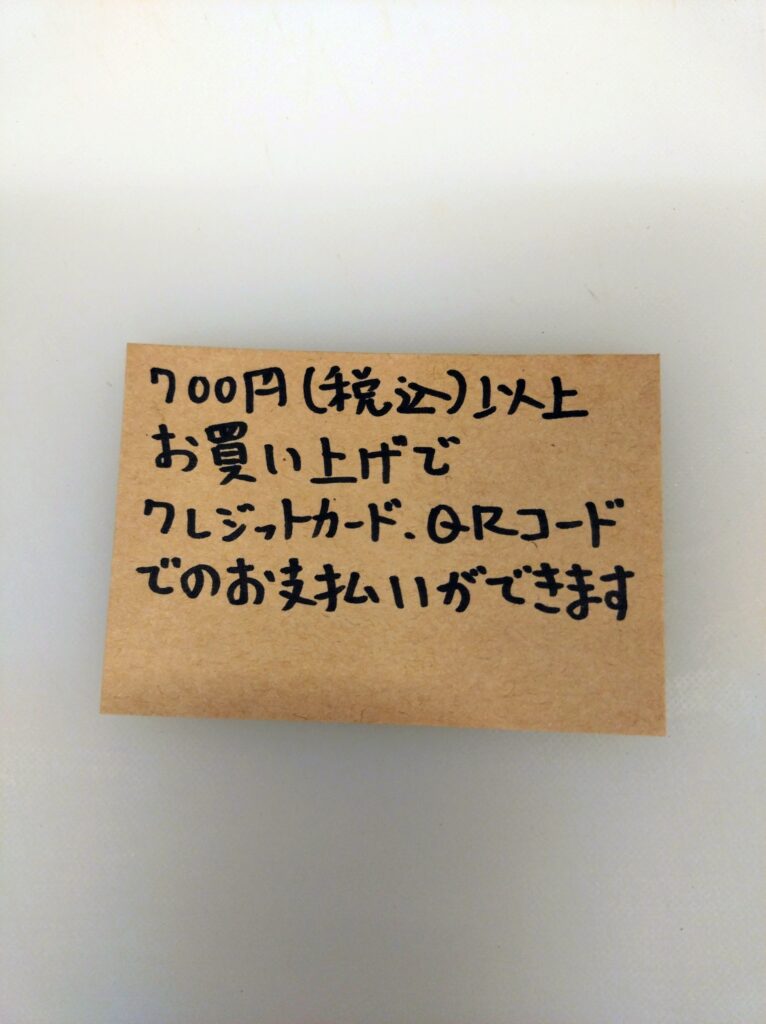 700円(税込)以上
お買い上げで
クレジットカード.QRコード
でのお支払いができます